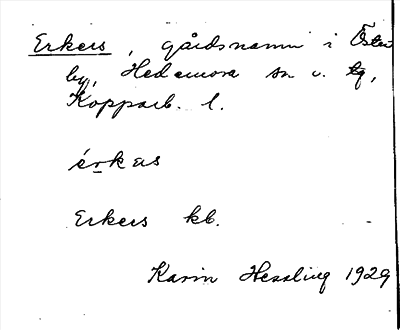 Erkers, gårdsnamn i Öster
by, Hedemora sn o. tg,
Kopparb. l.
érkas
Erkers kb.
Karin Hessling 1929